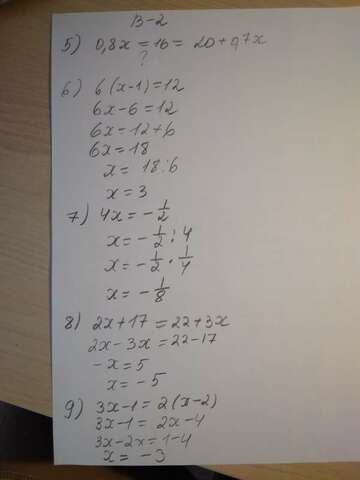 В-2
5) 0,8x = 16 = 20 + 0,7x
?
6) 6(x-1) = 12
6x - 6 = 12
6x = 12 + 6
6x = 18
x = 18 : 6
x = 3
7) 4x = -1/2
x = -1/2 : 4
x = -1/2 · 1/4
x = -1/8
8) 2x + 17 = 22 + 3x
2x - 3x = 22 - 17
-x = 5
x = -5
9) 3x - 1 = 2(x-2)
3x - 1 = 2x - 4
3x - 2x = 1 - 4
x = -3